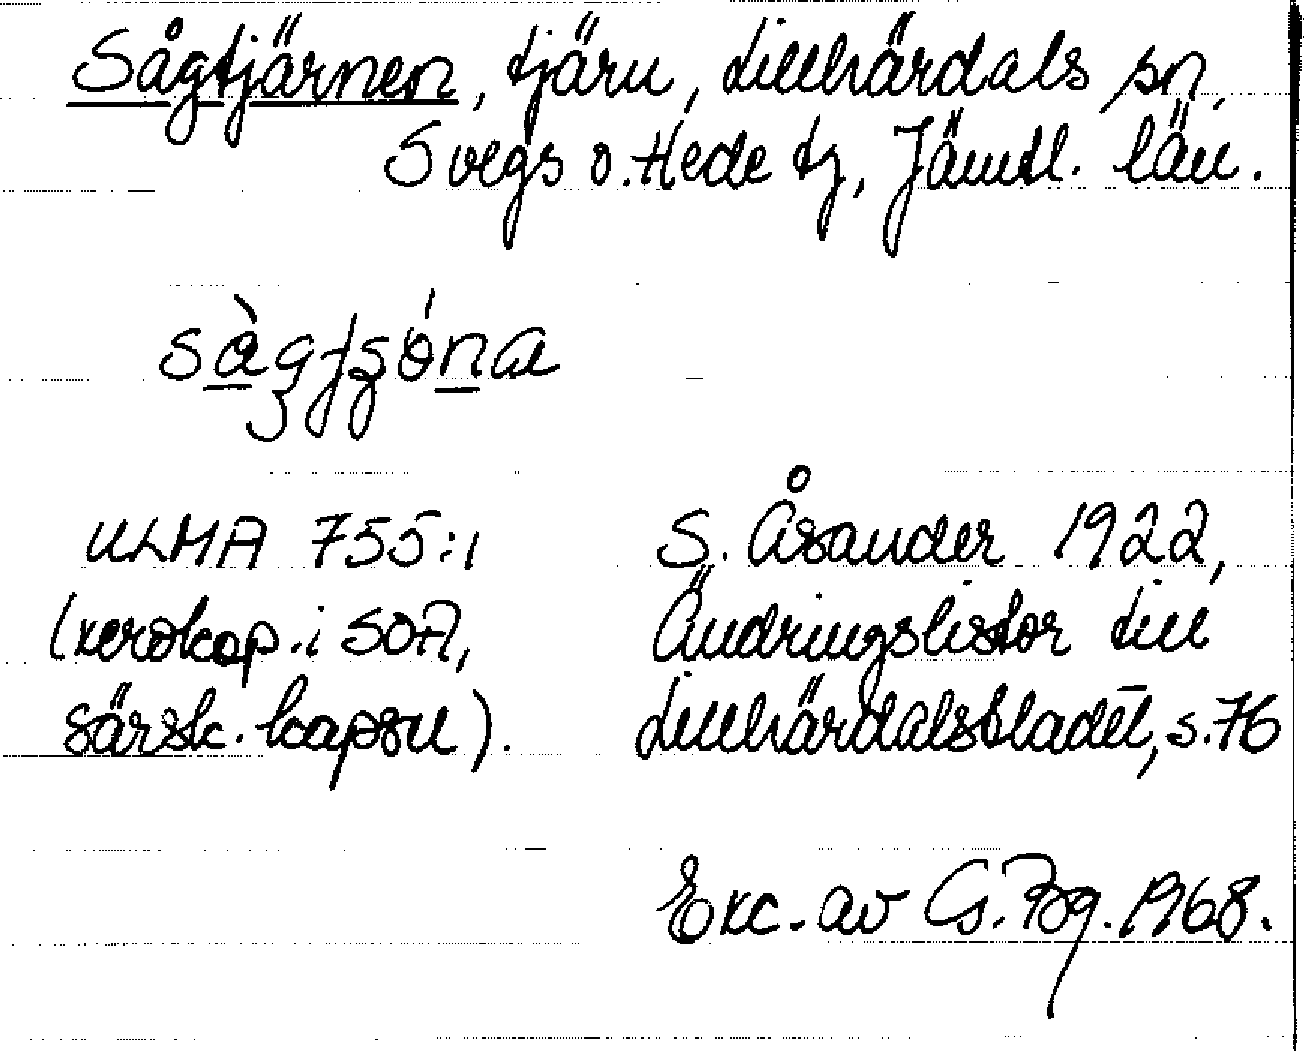 Sågtjärnen, tjärn, Lillhärdals sn,
Svegs o. Hede tg, Jämtl. län.
ULMA 755:1
(xerokop. i SOA,
särsk. kapsel).
S. Åsander 1922,
Ändringslistor till
Lillhärdalsbladet, s. 76
Exc. av G. Bg. 1968.